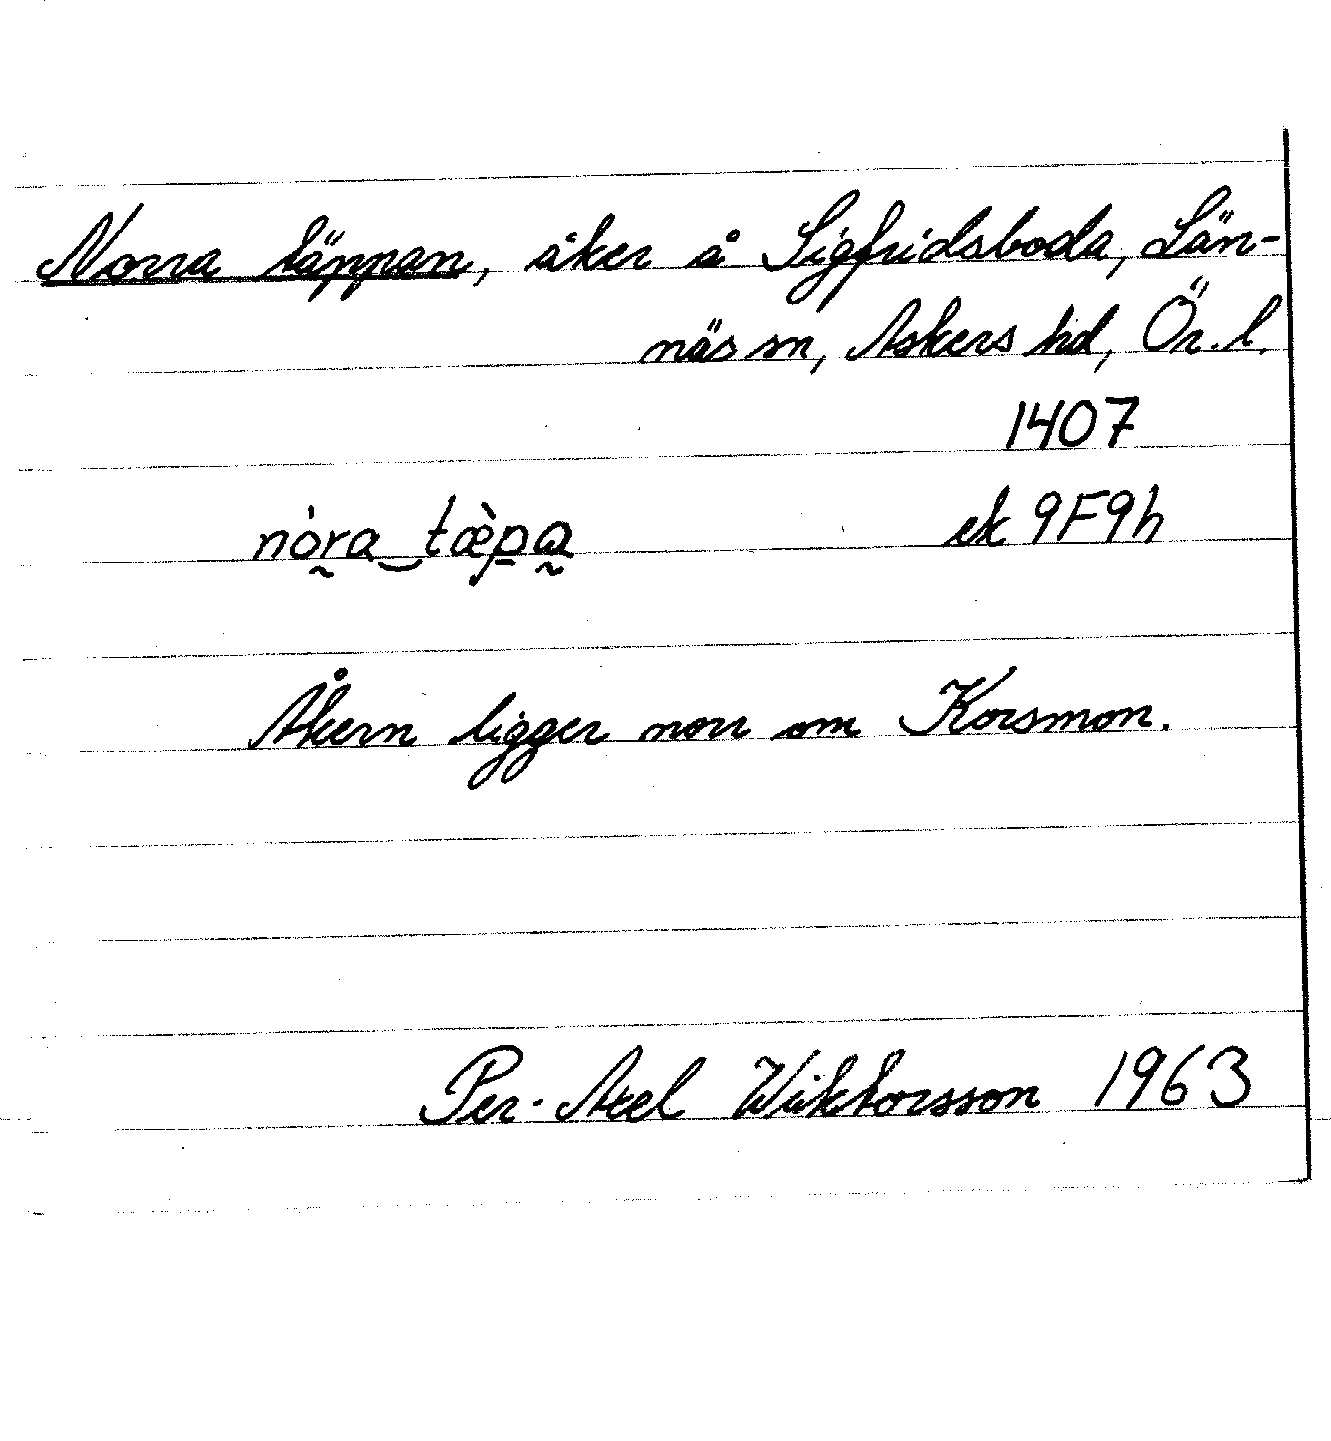 Norra täppan, åker å Sigfridsboda, Län-
näs sn, Askers hd, Ör. l.
1407
nòra‿tæ̀pa ek 9F9h
Åkern ligger norr om Korsmon.
Per-Axel Wiktorsson 1963